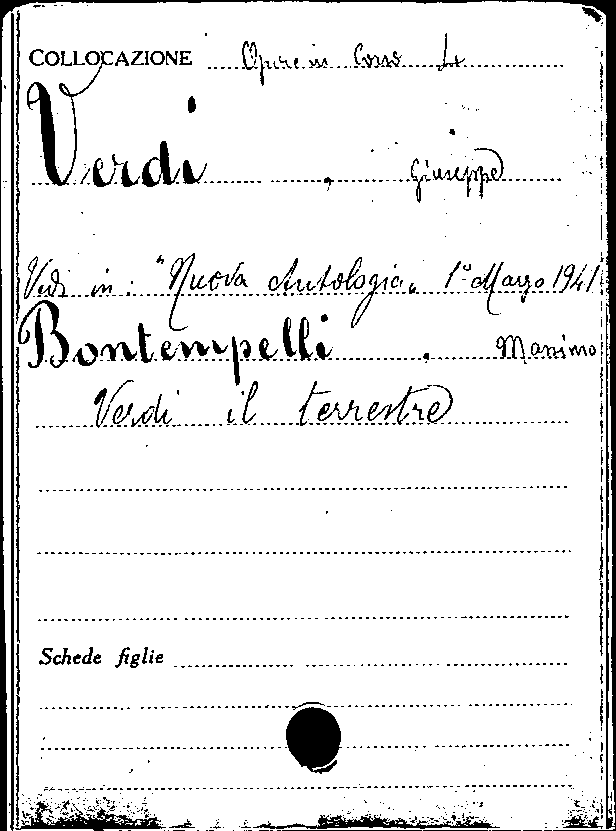 COLLOCAZIONE Opere in Corso 4
Verdi , Giuseppe
Vedi in: "Nuova Antologia„ 1° Marzo 1941
Bontempelli , Massimo
Verdi il terrestre
Schede figlie